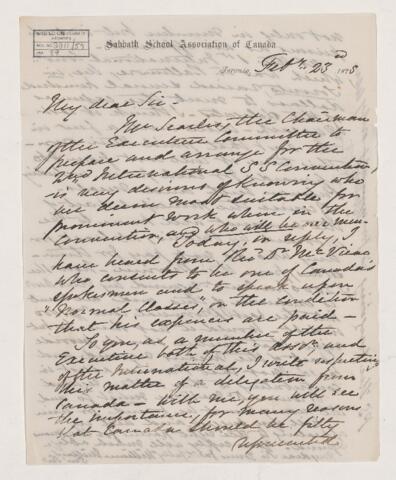 Sabbath School Association of Canada
Toronto, Feb. 23rd 1875
My dear Sir -
Mr Searles, the Chairman
of the Executive Committee to
prepare and arrange for the
International S S Convention,
is very desirous of knowing who
we deem most suitable for
prominent work when in the
Convention, and who will be our men -
Today, in reply, I
have heard from Revd Dr McVicar
who consents to be one of Canada's
spokesmen and to speak upon
"Normal Classes", on the condition
that his expenses are paid -
To you, as a member of the
Executive both of this Assn. and
of the International, I write respecting
this matter of a delegation from
Canada - With me, you will see
the importance, for many reasons
that Canada should be fitly
represented